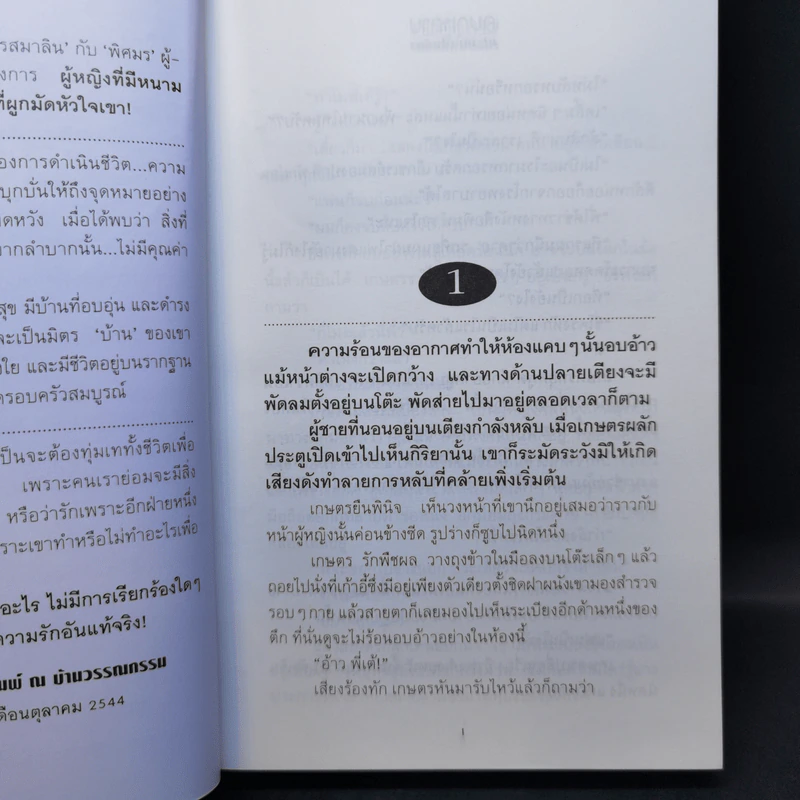 รสมาลิน' กับ 'พิศมร' ผู้-
งการ ผู้หญิงที่มีหนาม
ที่ผูกมัดหัวใจเขา!
องการดำเนินชีวิต...ความ
บุกบั่นให้ถึงจุดหมายอย่าง
ดหวัง เมื่อได้พบว่า สิ่งที่
ากลำบากนั้น...ไม่มีคุณค่า
สุข มีบ้านที่อบอุ่น และดำรง
ละเป็นมิตร 'บ้าน' ของเขา
งใย และมีชีวิตอยู่บนรากฐาน
ครอบครัวสมบูรณ์
ป็นจะต้องทุ่มเททั้งชีวิตเพื่อ
เพราะคนเราย่อมจะมีสิ่ง
หรือว่ารักเพราะอีกฝ่ายหนึ่ง
ราะเขาทำหรือไม่ทำอะไรเพื่อ
อะไร ไม่มีการเรียกร้องใดๆ
ความรักอันแท้จริง!
มพ์ ณ บ้านวรรณกรรม
ดือนตุลาคม 2544
1
ความร้อนของอากาศทำให้ห้องแคบๆนั้นอบอ้าว
แม้หน้าต่างจะเปิดกว้าง และทางด้านปลายเตียงจะมี
พัดลมตั้งอยู่บนโต๊ะ พัดส่ายไปมาอยู่ตลอดเวลาก็ตาม
ผู้ชายที่นอนอยู่บนเตียงกำลังหลับ เมื่อเกษตรผลัก
ประตูเปิดเข้าไปเห็นกิริยานั้น เขาก็ระมัดระวังมิให้เกิด
เสียงดังทำลายการหลับที่คล้ายเพิ่งเริ่มต้น
เกษตรยืนพินิจ เห็นวงหน้าที่เขานึกอยู่เสมอว่าราวกับ
หน้าผู้หญิงนั้นค่อนข้างซีด รูปร่างก็ซูบไปนิดหนึ่ง
เกษตร รักพืชผล วางถุงข้าวในมือลงบนโต๊ะเล็กๆ แล้ว
ถอยไปนั่งที่เก้าอี้ซึ่งมีอยู่เพียงตัวเดียวตั้งชิดฝาผนังเขามองสำรวจ
รอบๆกาย แล้วสายตาก็เลยมองไปเห็นระเบียงอีกด้านหนึ่งของ
ตึก ที่นั่นดูจะไม่ร้อนอบอ้าวอย่างในห้องนี้
"อ้าว พี่เต้!"
เสียงร้องทัก เกษตรหันมารับไหว้แล้วก็ถามว่า
1